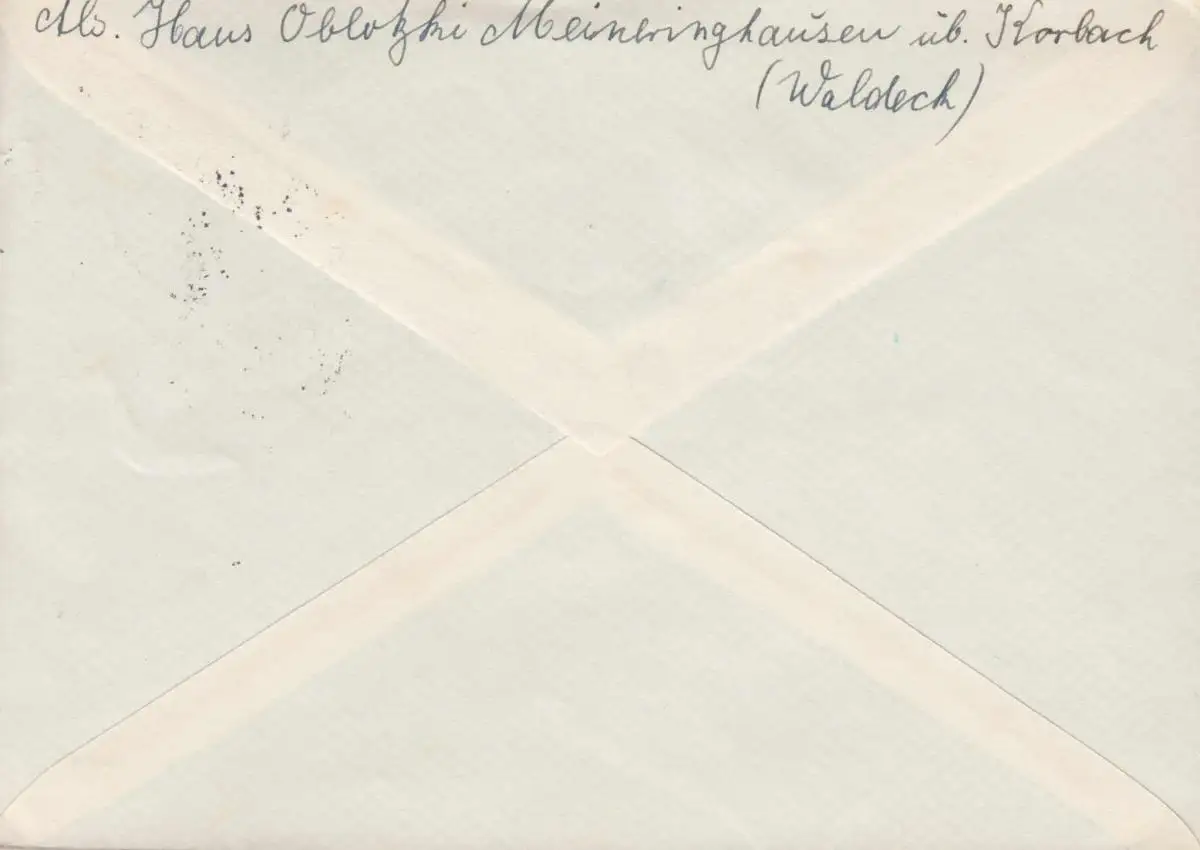 Abs. Hans Oblotzki Meineringhausen üb. Korbach
(Waldeck)